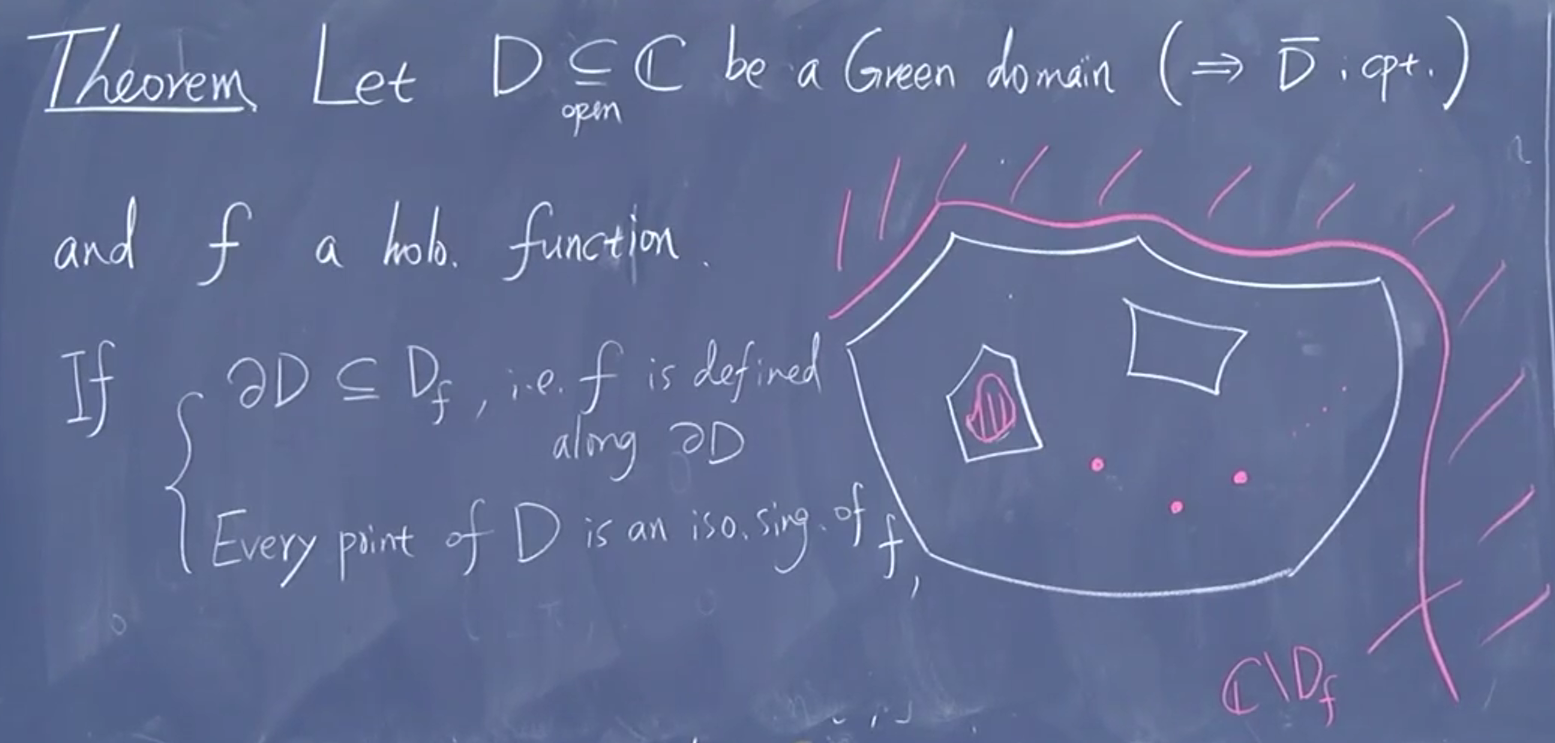 Theorem Let D ⊆ ℂ be a Green domain (⇒ D̅ : cpt.)
open
and f a holo. function.
If { ∂D ⊆ D_f, i.e. f is defined
along ∂D
Every point of D is an iso. sing. of f,
ℂ\D_f